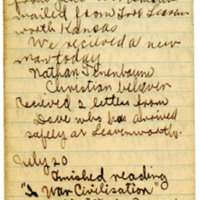 from
mailed from Fort Leaven
worth Kansas
We received a new
man today
Nathan Tenenbaume
Christian believer
Received 2 letters from
Dave who has arrived
safely at Leavenworth.
July 20
Finished reading
"Is War Civilisation"